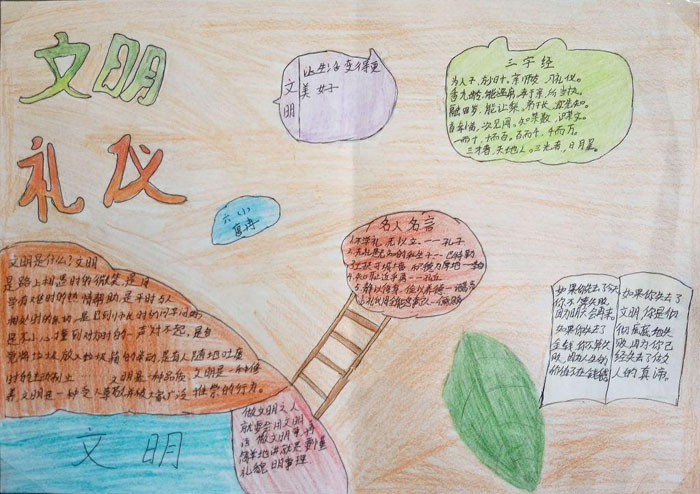 文明
礼仪
文明
让生活变得更
美好
三字经
为人子,方少时,亲师友,习礼仪。
香九龄,能温席,孝于亲,所当执。
融四岁,能让梨,弟于长,宜先知。
首孝悌,次见闻,知某数,识某文。
一而十,十而百,百而千,千而万。
三才者,天地人。三光者,日月星。
六(小)
名人名言
1.不学礼,无以立。---孔子
文明是什么?文明
是路上相遇时的微笑,是同
学有难时的热情帮助,是平时与人
相处时的
是不小心撞到对方时的一声对不起,是自
觉将垃圾放入垃圾箱的举动,是看人随地吐痰
时的主动制止 文明是一种品质,文明是一种修
养,文明是一种受人尊敬并被大家广泛推崇的行为。
做文明之人
就要会用文明
语,做文明事,再
简单地讲就是要懂
礼貌,明事理
如果你失去了今天
你不算失败,
因为明天会再来。
如果你失去了
金钱,你不算失
败,因为人生的
价值不在金钱
如果你失去了
文明,你是彻
彻底底地失
败,因为你已
经失去了做
人的真谛。
文明